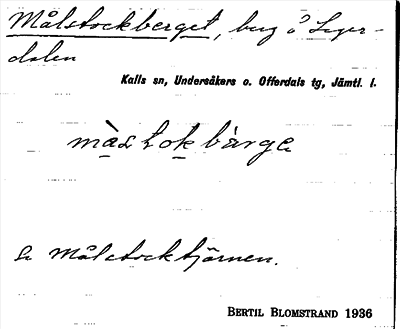 Målstockberget, berg å Leger-
dalen
Kalls sn, Undersåkers o. Offerdals tg, Jämtl. l.
màs̱tok̠bàrge
Se Målstocktjärnen.
BERTIL BLOMSTRAND 1936